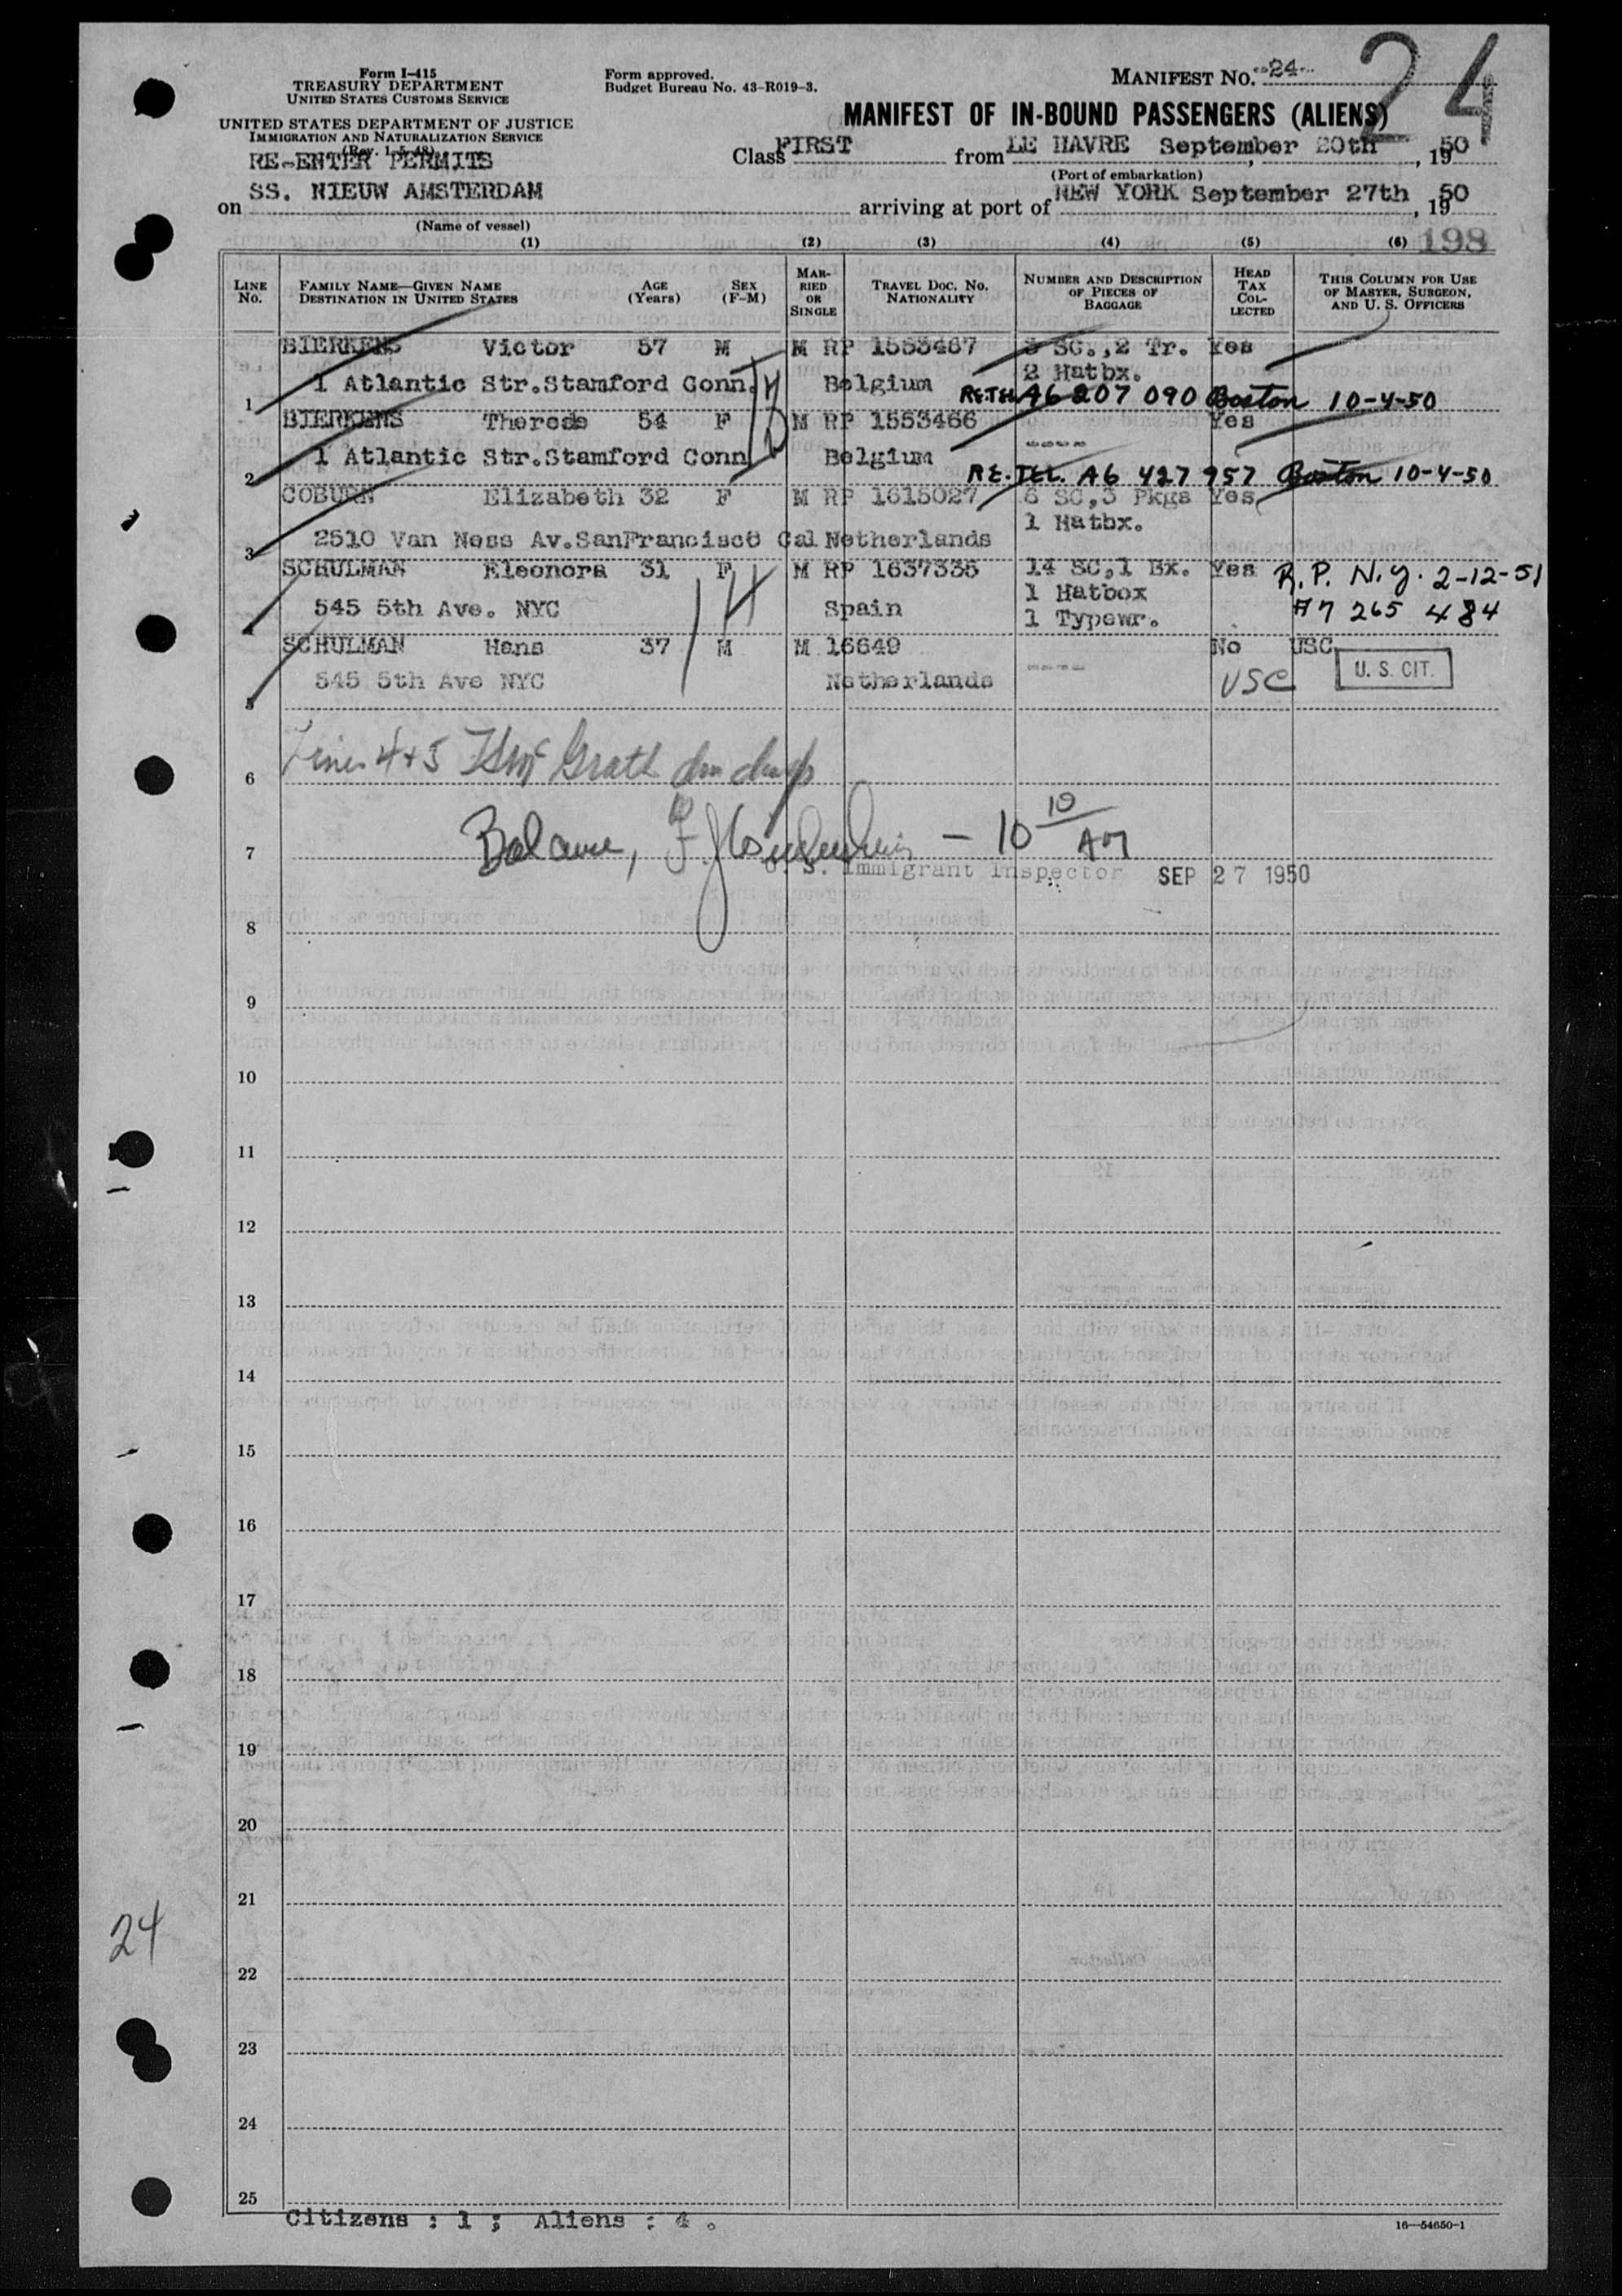 Form I-415
TREASURY DEPARTMENT
UNITED STATES CUSTOMS SERVICE
UNITED STATES DEPARTMENT OF JUSTICE
IMMIGRATION AND NATURALIZATION SERVICE
(Rev. 1-5-48)
RE-ENTER PERMITS
Form approved.
Budget Bureau No. 43-R019-3.
MANIFEST NO. -24-
24
MANIFEST OF IN-BOUND PASSENGERS (ALIENS)
Class FIRST from LE HAVRE September 20th, 1950
(Port of embarkation)
on SS. NIEUW AMSTERDAM arriving at port of NEW YORK September 27th, 1950
(Name of vessel)
(1) (2) (3) (4) (5) (6) 198
LINE NO.
FAMILY NAME—GIVEN NAME
DESTINATION IN UNITED STATES
AGE (Years)
SEX (F-M)
MARRIED OR SINGLE
TRAVEL DOC. NO. NATIONALITY
NUMBER AND DESCRIPTION OF PIECES OF BAGGAGE
HEAD TAX COLLECTED
THIS COLUMN FOR USE OF MASTER, SURGEON, AND U. S. OFFICERS
BIERKENS Victor 57 M M RP 1553467 3 SC.,2 Tr. Yes
2 Hatbx.
1 1 Atlantic Str.Stamford Conn. Belgium RE.TEL A6 207 090 Boston 10-4-50
BIERKENS Therese 54 F M RP 1553466 ---- Yes
2 1 Atlantic Str.Stamford Conn Belgium RE.TEL. A6 427 957 Boston 10-4-50
COBURN Elizabeth 32 F M RP 1615027 6 SC,3 Pkgs Yes
1 Hatbx.
3 2510 Van Ness Av.SanFrancisco Cal Netherlands
SCHULMAN Eleonora 31 F M RP 1637335 14 SC,1 Bx. Yes R.P. N.Y. 2-12-51
1 Hatbox
4 545 5th Ave. NYC Spain 1 Typewr. A7 265 484
SCHULMAN Hans 37 M M 16649 ---- No USC
5 545 5th Ave NYC Netherlands USC U. S. CIT.
6 Lines 4+5
7 Balance, — 10 10 AM
U. S. Immigrant Inspector SEP 27 1950
8
9
10
11
12
13
14
15
16
17
18
19
20
21
24
22
23
24
25
Citizens : 1 ; Aliens : 4 .
16—54650-1